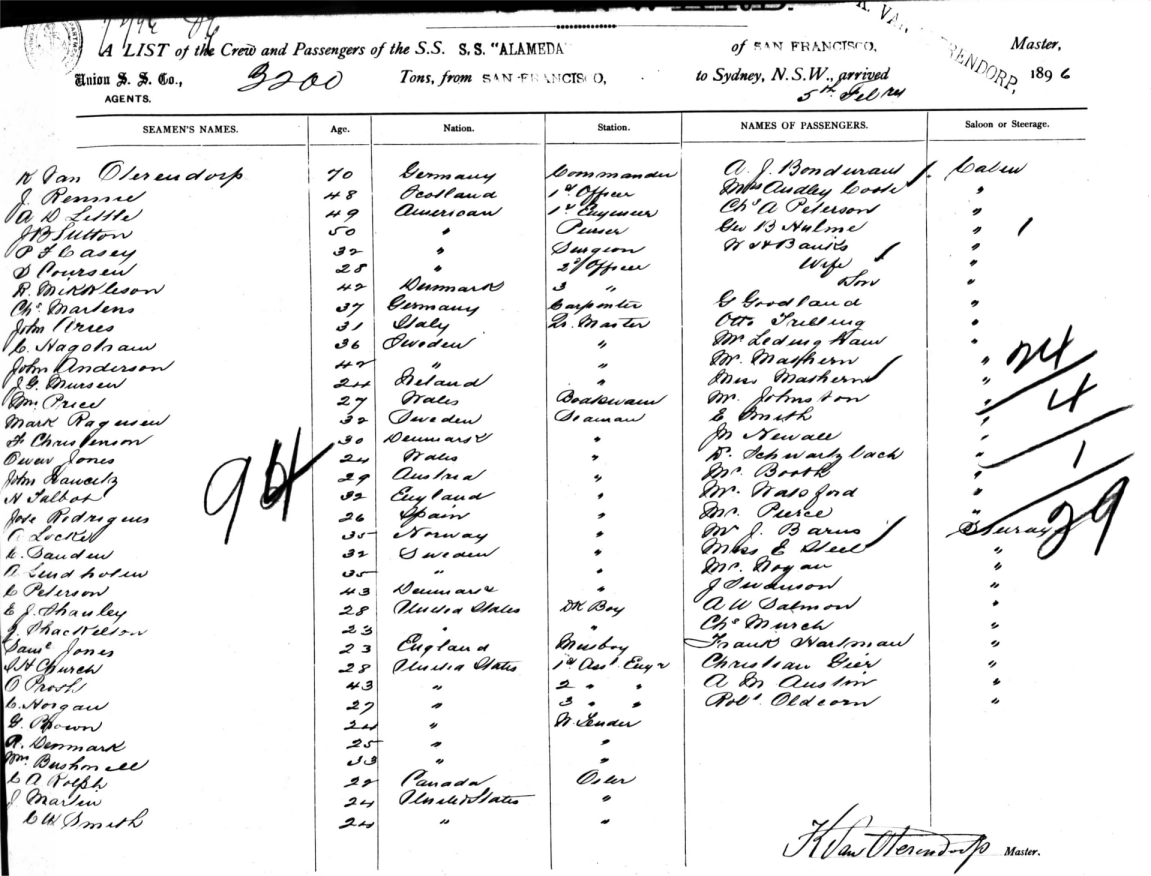 A LIST of the Crew and Passengers of the S.S. S.S. "ALAMEDA" of SAN FRANCISCO, K. VAN OTERENDORP, Master,
Union S. S. Co., 3200 Tons, from SAN FRANCISCO, to Sydney, N.S.W., arrived 1896
AGENTS. 5th Feb
SEAMEN'S NAMES. Age. Nation. Station. NAMES OF PASSENGERS. Saloon or Steerage.
K Van Oterendorp 70 Germany Commander A. J. Bondurant Cabin
J. Rennie 48 Scotland 1st Officer Audley Coote "
A D Little 49 American 1st Engineer Chs A Peterson "
J B Sutton 50 " Purser Geo B Hulme " 1
P F Casey 32 " Surgeon W H Banks "
S Coursen 28 " 2d Officer Wife "
R. Mikkleson 42 Denmark 3 " Son "
Chs Martens 37 Germany Carpenter G Goodland "
John 31 Italy Qr. Master Otto Trilling "
C. 36 Sweden " Mr Ledingham "
John Anderson 42 " " Mr. Mathern "
J. G. 24 Ireland " Miss Mathern "
Wm Price 27 Wales Boatswain Mr. Johnston "
Mark 32 Sweden Seaman E Smith "
F Christenson 30 Denmark " Newall "
Owen Jones 24 Wales " Schwartzbach "
John 29 Austria " Mr. Booth "
H Talbot 32 England " Mr. "
Jose Rodrigues 26 Spain " Mr. Pierce "
Locke 35 Norway " Mr J. Steerage
Sanden 32 Sweden " Miss E Steel "
A 35 " " Mr. Hogan "
C Peterson 43 Denmark " J Swanson "
E J. Stanley 28 United States DK Boy A W Salmon "
J. Shackelton 23 " " Chs Murch "
Saml Jones 23 England Messboy Frank Hartman "
Church 28 United States 1st Asst. Engr Christian Gier "
O Prosh 43 " 2 " " A M Austin "
C. Horgan 27 " 3 " " Robt Oldcorn "
G. Brown 24 " W. Tender
A. Denmark 25 " "
Wm Bushnell 33 " "
C A Rolph 22 Canada Oiler
J Martin 24 United States "
C W Smith 24 " "
94
24
4
1
29
K Van Oterendorp Master.